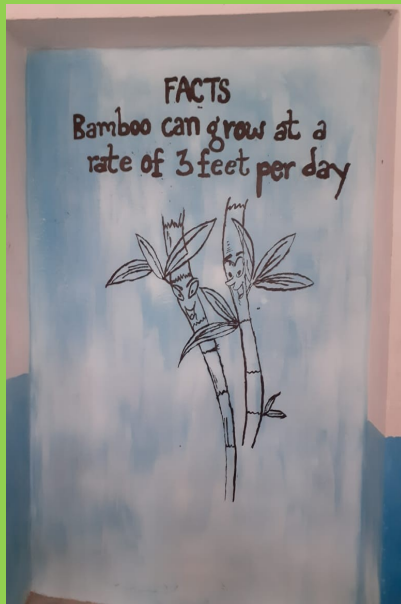 FACTS
Bamboo can grow at a
rate of 3 feet per day